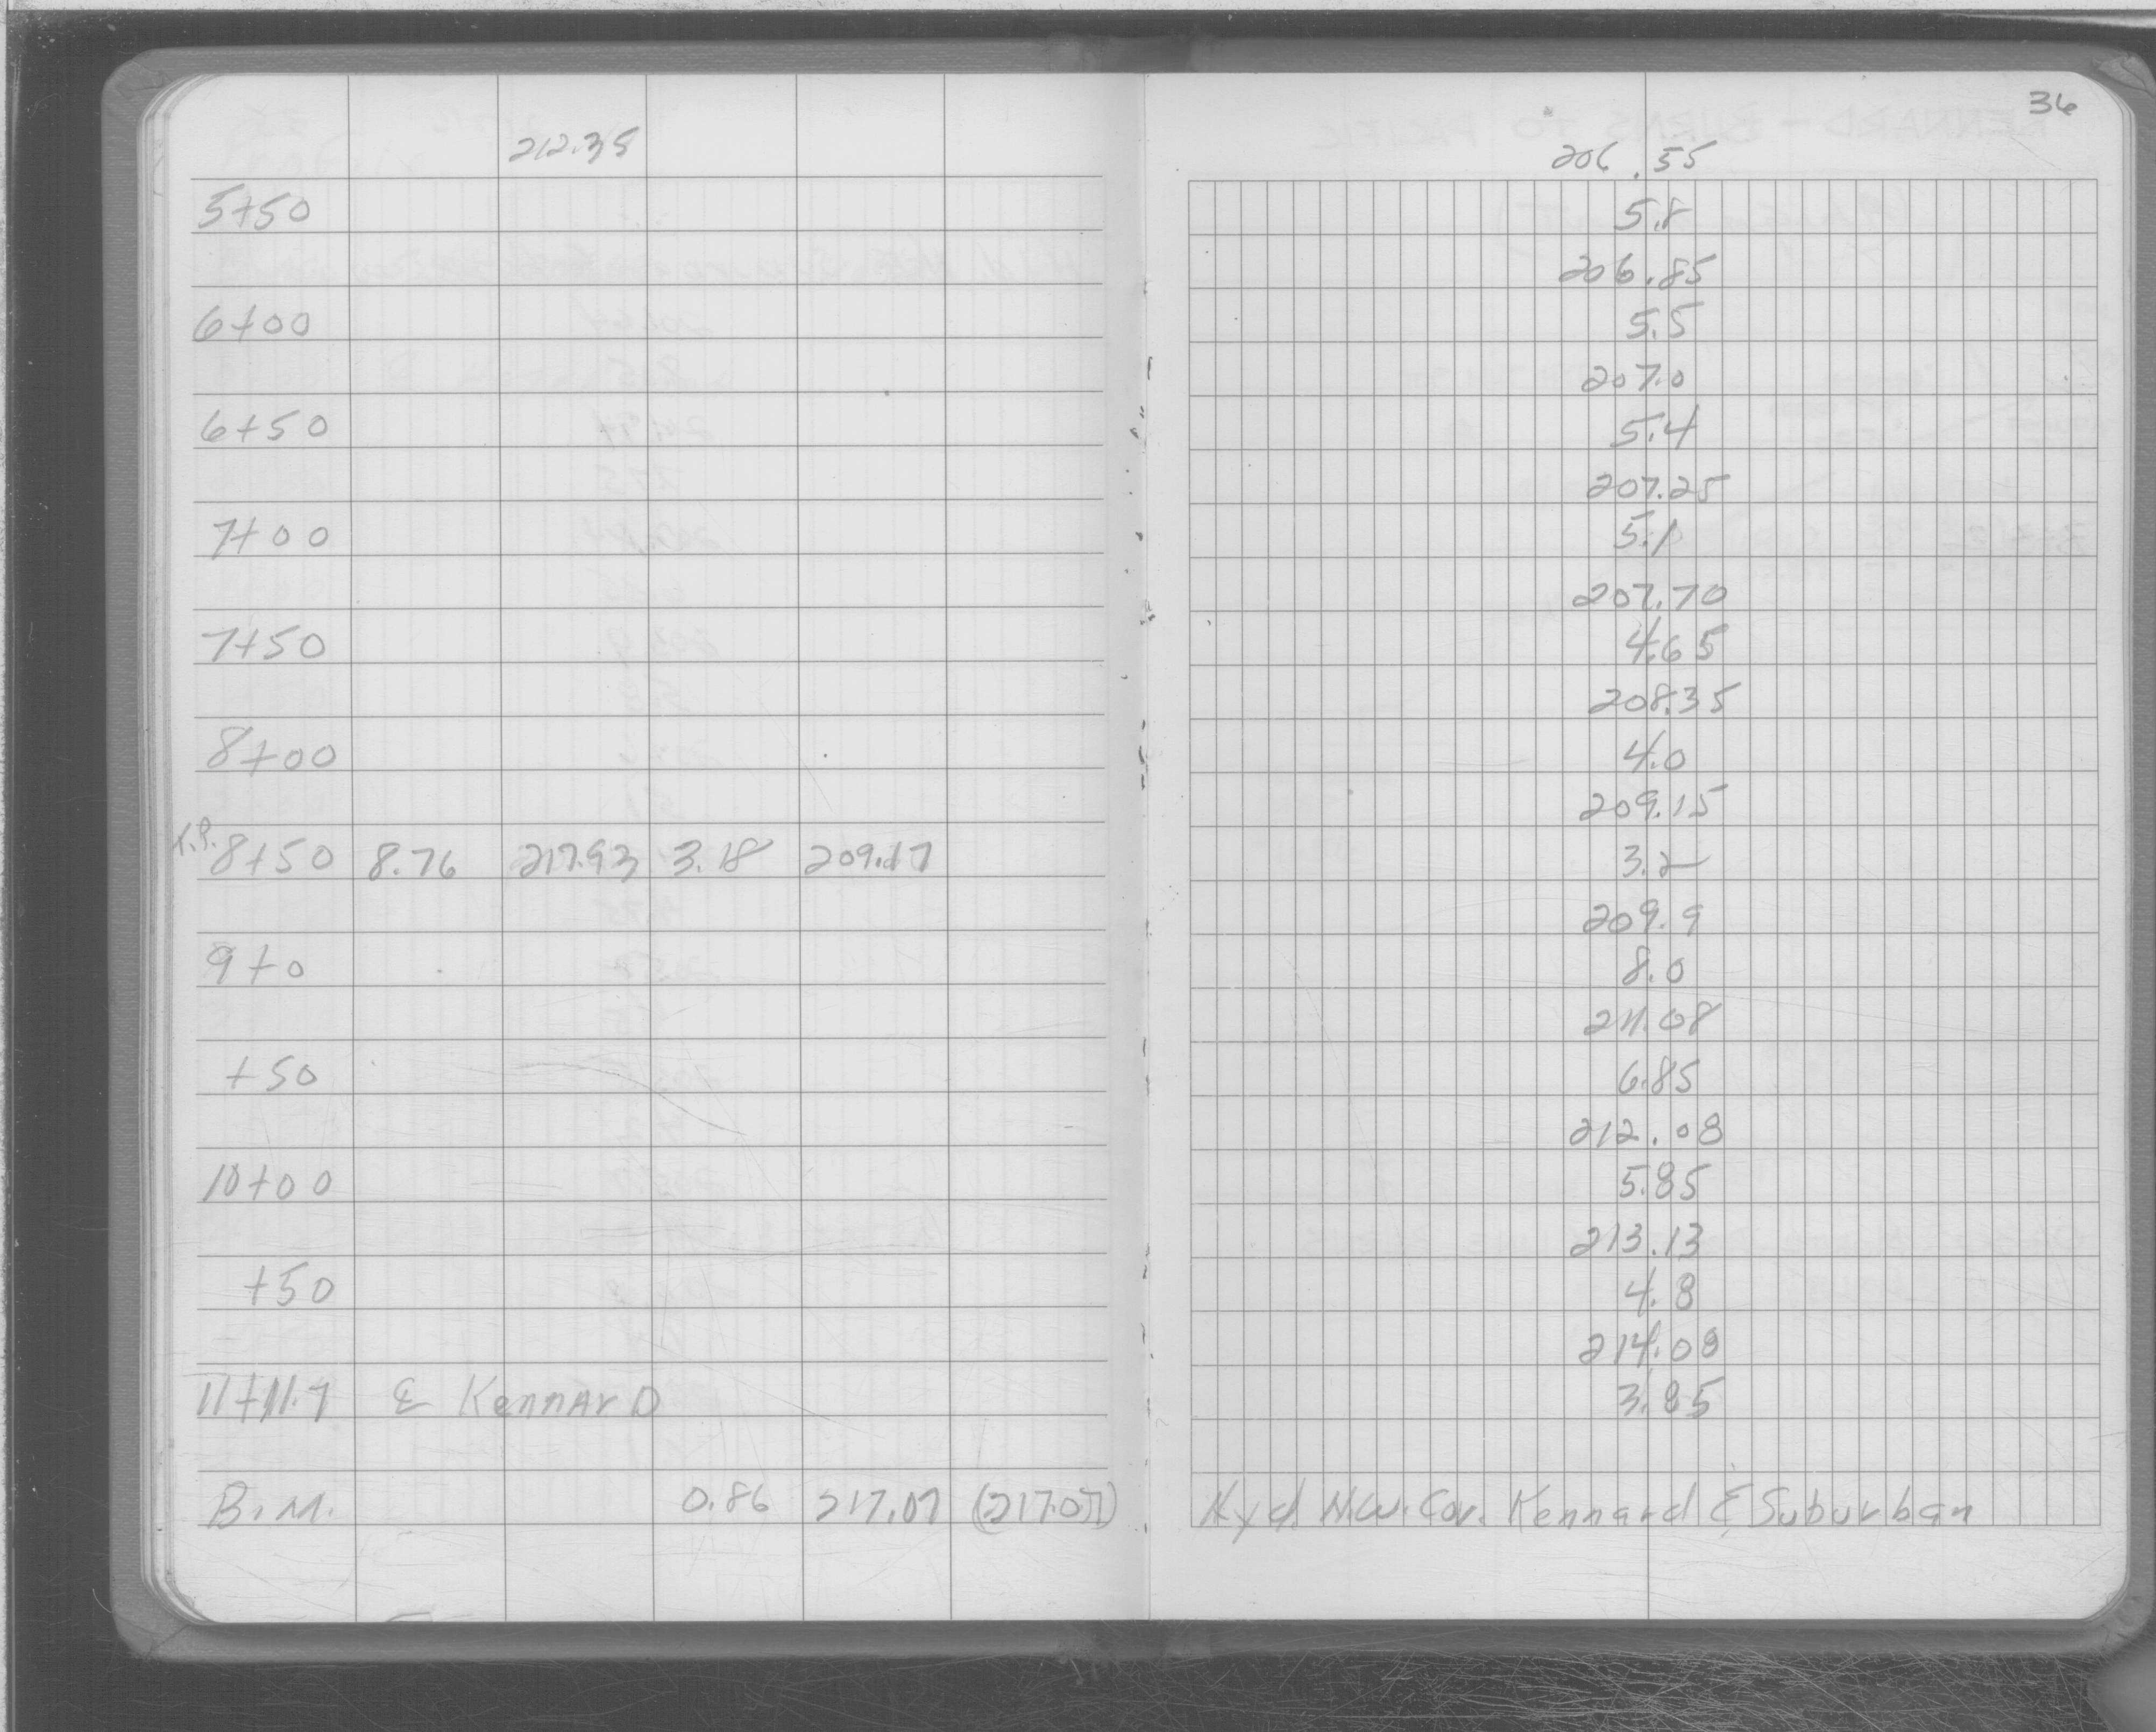 36
212.35 206.55
5+50 5.8
206.85
6+00 5.5
207.0
6+50 5.4
207.25
7+00 5.1
207.70
7+50 4.65
208.35
8+00 4.0
209.15
T.P. 8+50 8.76 217.93 3.18 209.17 3.2
209.9
9+0 8.0
211.08
+50 6.85
212.08
10+00 5.85
213.13
+50 4.8
214.08
11+11.7 & Kennard 3.85
B.M. 0.86 217.07 (217.07) Hyd N.W. Cor. Kennard & Suburban